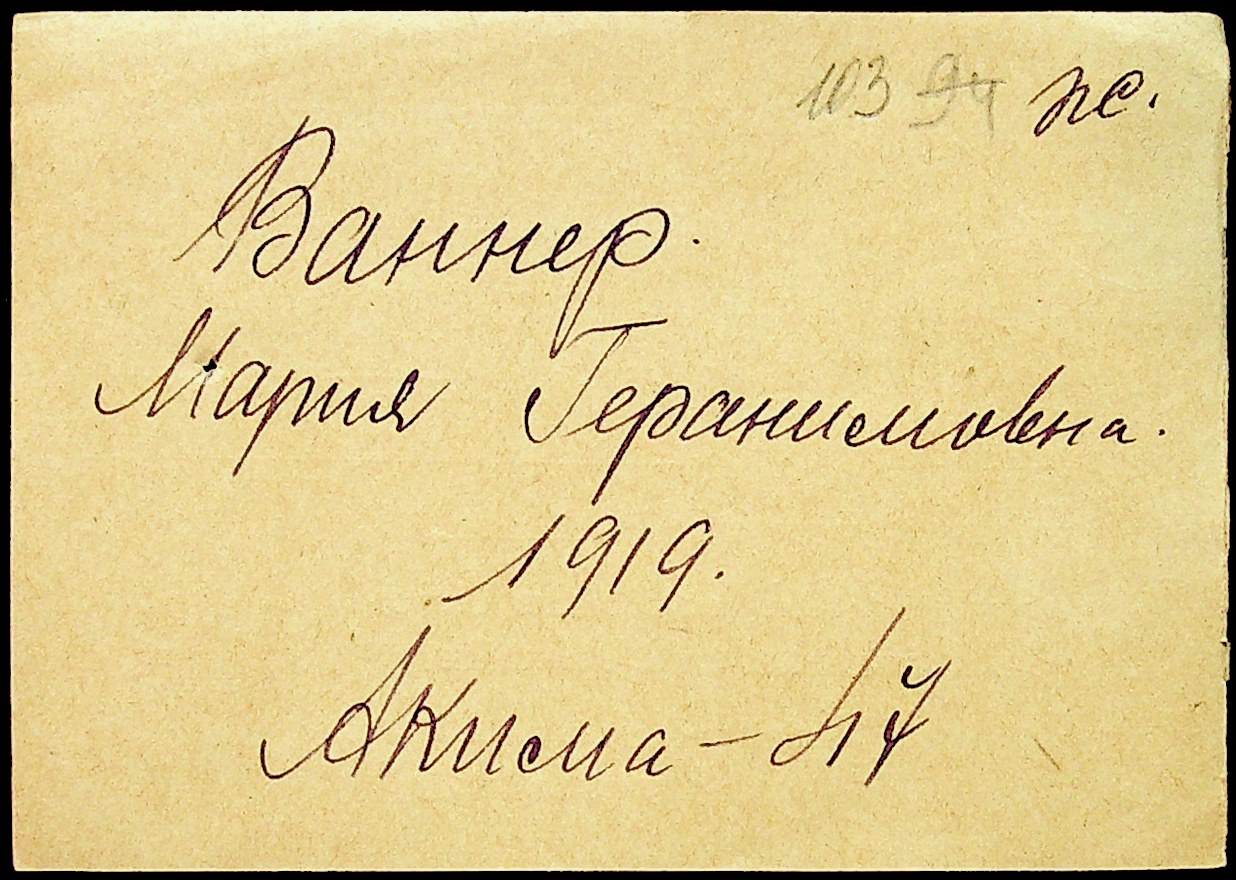 103 94 пс.
Ваннер.
Мария Геранимовна.
1919.
Акима - 47